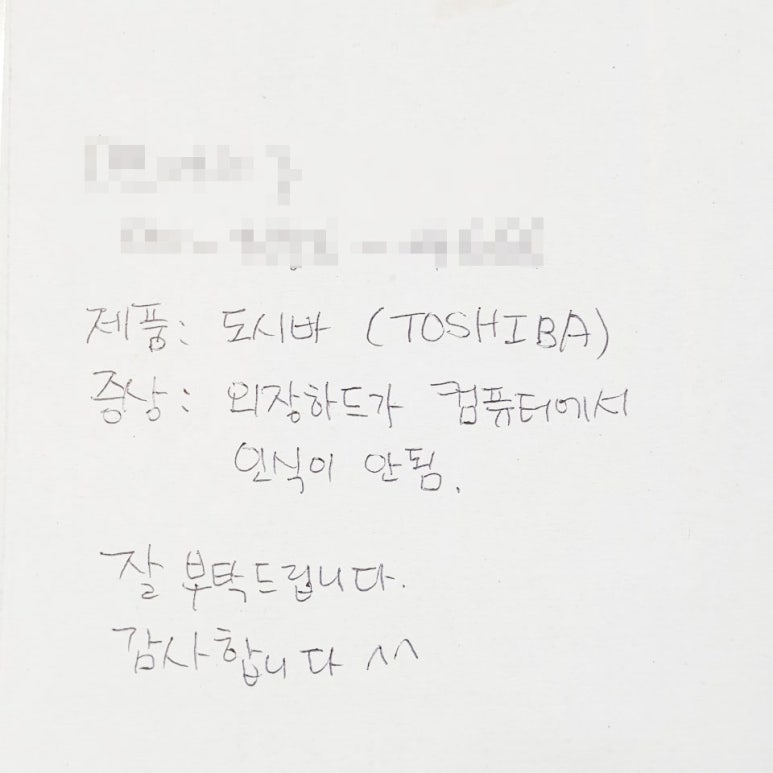 제품: 도시바 (TOSHIBA)
증상: 외장하드가 컴퓨터에서
인식이 안됨.
잘 부탁드립니다.
감사합니다 ^^